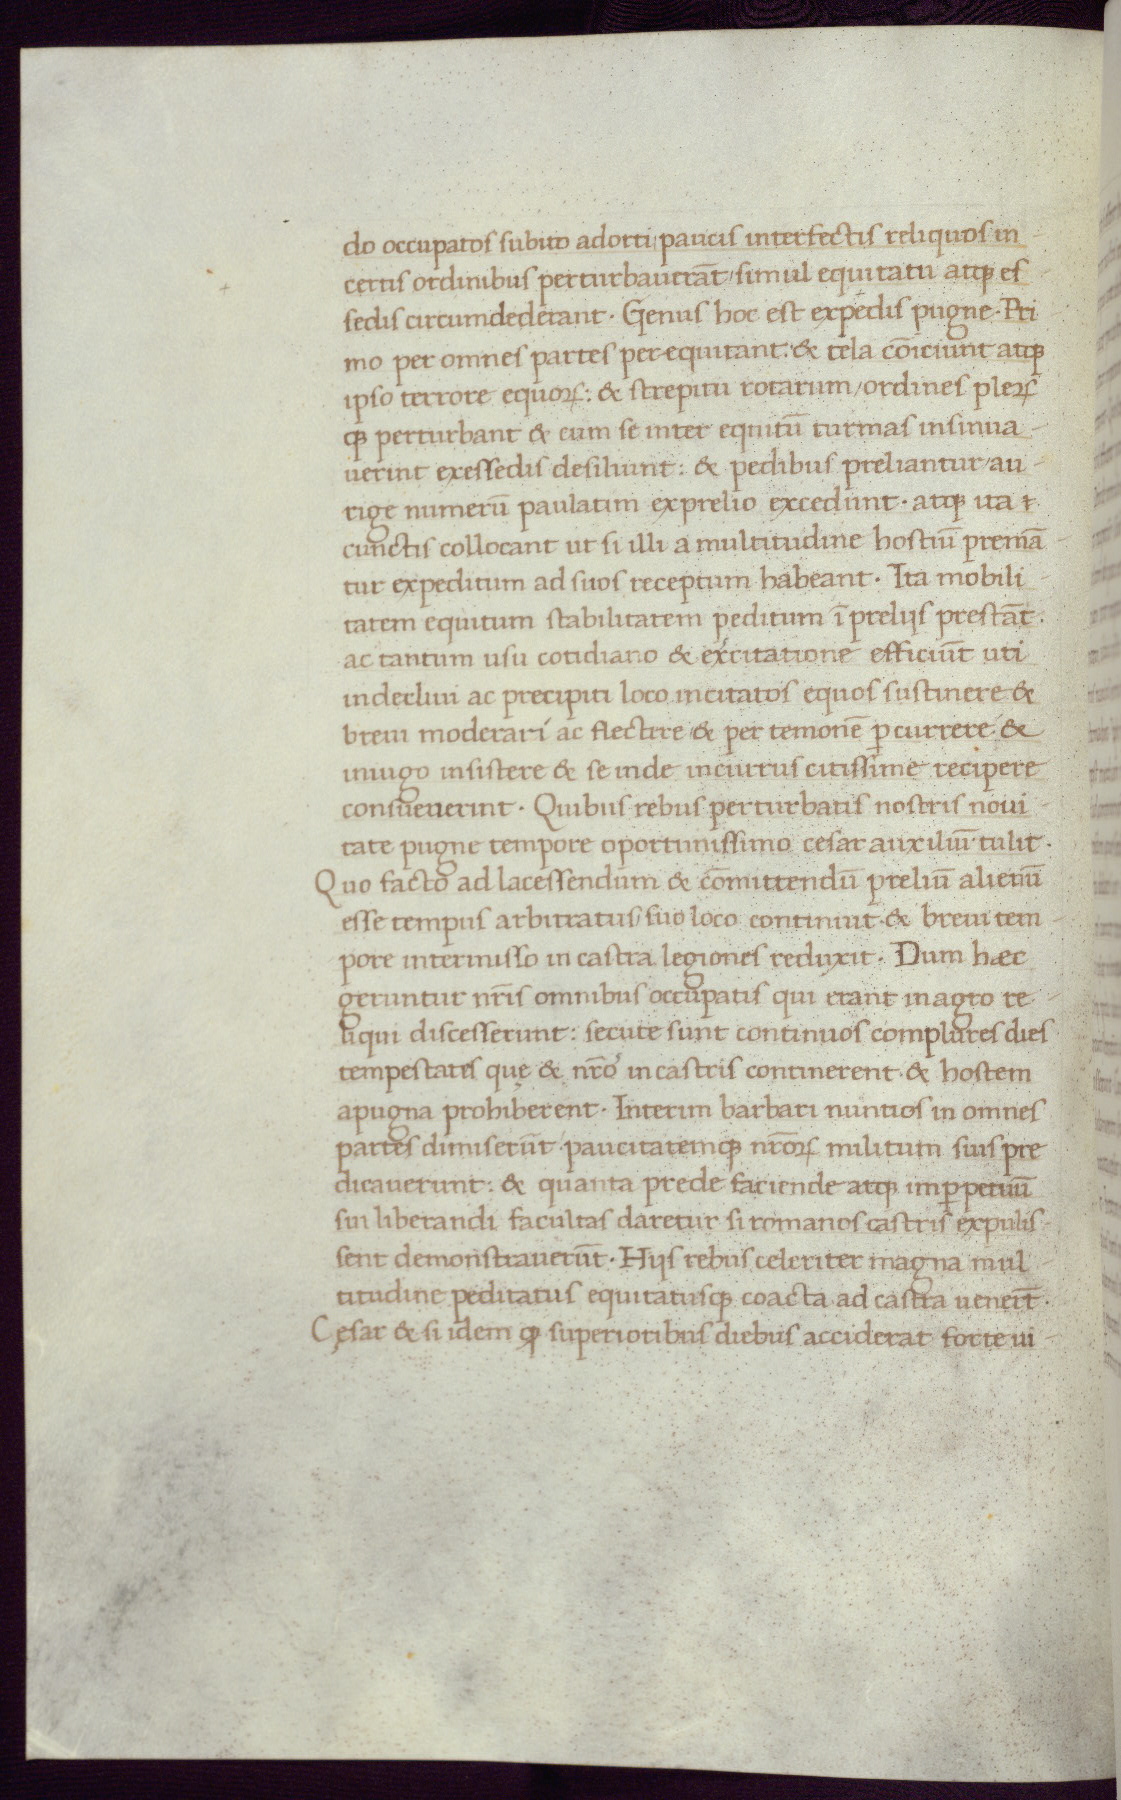 do occupatos subito adorti/paucis interfectis reliquos in-
certis ordinibus perturbauerāt/simul equitatu atqꝫ es-
sedis circumdederant. Genus hoc est expedis pugne. Pri
mo per omnes partes per equitant: & tela cōiciunt atqꝫ
ipso terrore equoꝝ: & strepitu rotarum/ordines pleꝝ
qꝫ perturbant & cum se inter equitū turmas insinua-
uerint exessedis desiliunt: & pedibus preliantur/au-
rige numerū paulatim exprelio excedunt. atqꝫ ita r-
cunctis collocant ut si illi a multitudine hostiū premā
tur expeditum ad suos receptum habeant. Ita mobili-
tatem equitum stabilitatem peditum ī prelijs prestāt.
ac tantum usu cotidiano & excitatione efficiūt uti
indecliui ac precipiti loco incitatos equos sustinere &
breui moderari ac flectere & per temonē ꝑcurrere &
iniugo insistere & se inde incurrus citissime recipere
consueuerint. Quibus rebus perturbatis nostris noui-
tate pugne tempore oportunissimo cesar auxiliū tulit.
Quo facto ad lacessendum & cōmittendū preliū alienū
esse tempus arbitratus/suo loco continuit & breui tem
pore intermisso in castra legiones reduxit. Dum hæc
geruntur nr̄is omnibus occupatis qui erant inagro re-
liqui discesserunt: secute sunt continuos complures dies
tempestates que & nr̄o incastris continerent & hostem
apugna prohiberent. Interim barbari nuntios in omnes
partes dimiserūt paucitatemqꝫ nr̄oꝝ militum suis pre
dicauerunt: & quanta prede faciende atqꝫ imꝑpetuū
sui liberandi facultas daretur si romanos castris expulis-
sent demonstrauerūt. Hijs rebus celeriter magna mul-
titudine peditatus equitatusqꝫ coacta ad castra uenerūt.
Cęsar & si idem ꝙ superioribus diebus acciderat forte ui-